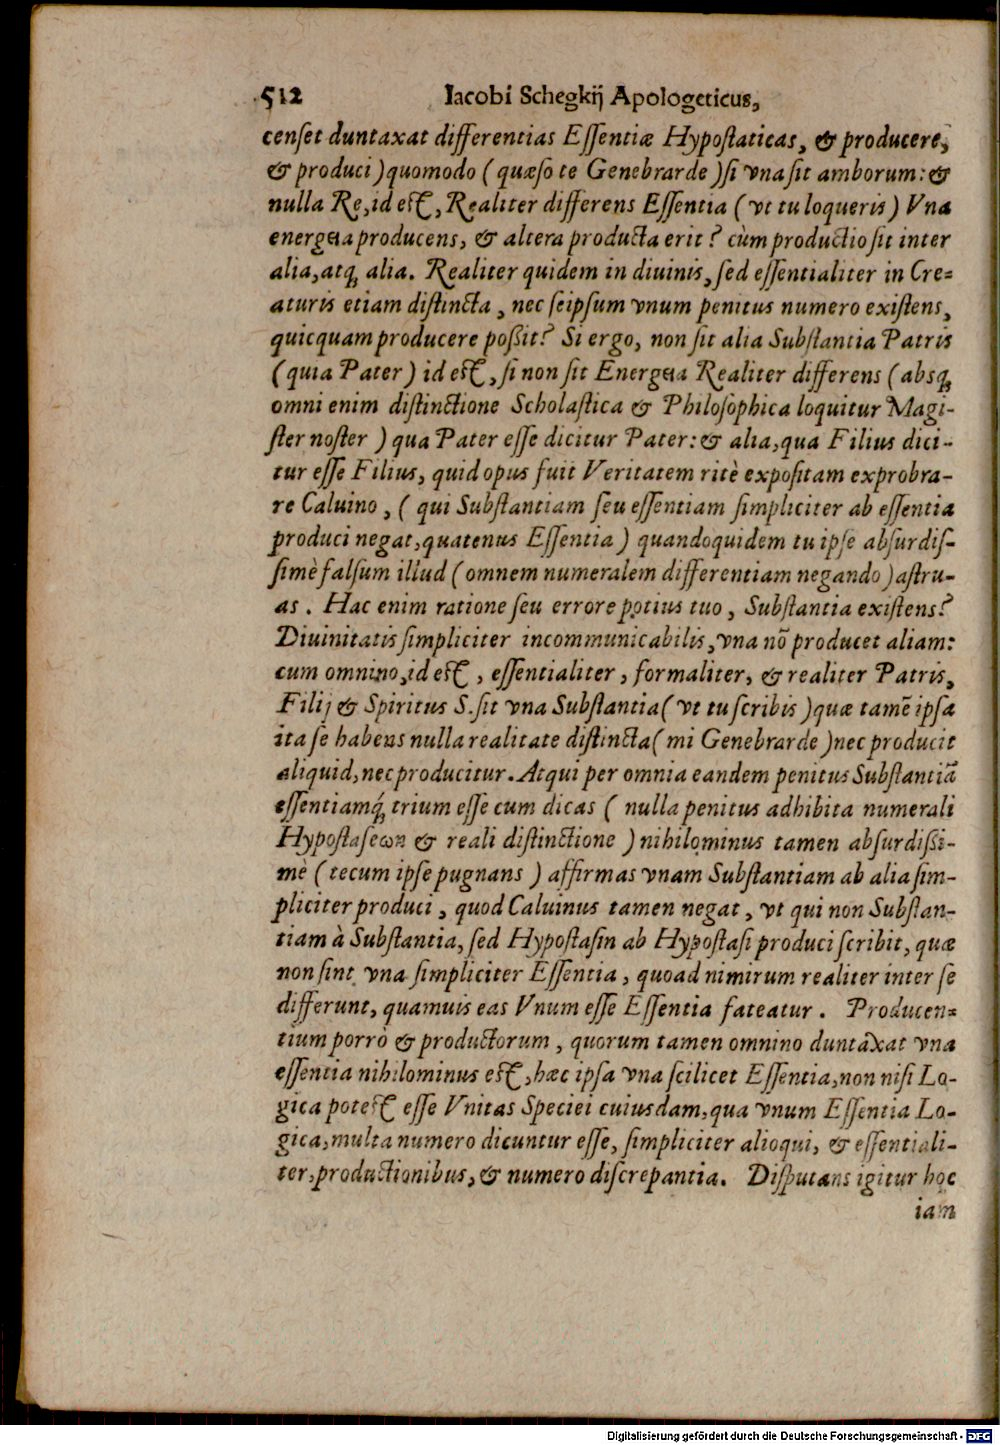 512 Iacobi Schegkij Apologeticus,
cenſet duntaxat differentias Eſſentiæ Hypoſtaticas, & producere,
& produci) quomodo (quæſo te Genebrarde) ſi vna ſit amborum: &
nulla Re, id eſt, Realiter differens Eſſentia (vt tu loqueris) Vna
energeia producens, & altera producta erit? cùm productio ſit inter
alia, atq; alia. Realiter quidem in diuinis, ſed eſſentialiter in Cre=
aturis etiam diſtincta, nec ſeipſum vnum penitus numero exiſtens,
quicquam producere poßit? Si ergo, non ſit alia Subſtantia Patris
(quia Pater) id eſt, ſi non ſit Energeia Realiter differens (absq;
omni enim diſtinctione Scholaſtica & Philoſophica loquitur Magi-
ſter noſter) qua Pater eſſe dicitur Pater: & alia, qua Filius dici-
tur eſſe Filius, quid opus fuit Veritatem ritè expoſitam exprobra-
re Caluino, (qui Subſtantiam ſeu eſſentiam ſimpliciter ab eſſentia
produci negat, quatenus Eſſentia) quandoquidem tu ipſe abſurdiſ-
ſimè falſum illud (omnem numeralem differentiam negando) aſtru-
as. Hac enim ratione ſeu errore potius tuo, Subſtantia exiſtens?
Diuinitatis ſimpliciter incommunicabilis, vna nō producet aliam:
cum omnino, id eſt, eſſentialiter, formaliter, & realiter Patris,
Filij & Spiritus S. ſit vna Subſtantia (vt tu ſcribis) quæ tamē ipſa
ita ſe habens nulla realitate diſtincta (mi Genebrarde) nec producit
aliquid, nec producitur. Atqui per omnia eandem penitus Subſtantiā
eſſentiamq́; trium eſſe cum dicas (nulla penitus adhibita numerali
Hypoſtaſeωn & reali diſtinctione) nihilominus tamen abſurdißi-
mè (tecum ipſe pugnans) affirmas vnam Subſtantiam ab alia ſim-
pliciter produci, quod Caluinus tamen negat, vt qui non Subſtan-
tiam à Subſtantia, ſed Hypoſtaſin ab Hypoſtaſi produci ſcribit, quæ
non ſint vna ſimpliciter Eſſentia, quoad nimirum realiter inter ſe
differunt, quamuis eas Vnum eſſe Eſſentia fateatur. Producen=
tium porrò & productorum, quorum tamen omnino duntaxat vna
eſſentia nihilominus eſt, hæc ipſa vna ſcilicet Eſſentia, non niſi Lo-
gica poteſt eſſe Vnitas Speciei cuiusdam, qua vnum Eſſentia Lo-
gica, multa numero dicuntur eſſe, ſimpliciter alioqui, & eſſentiali-
ter, productionibus, & numero diſcrepantia. Diſputans igitur hoc
iam
Digitalisierung gefördert durch die Deutsche Forschungsgemeinschaft - DFG